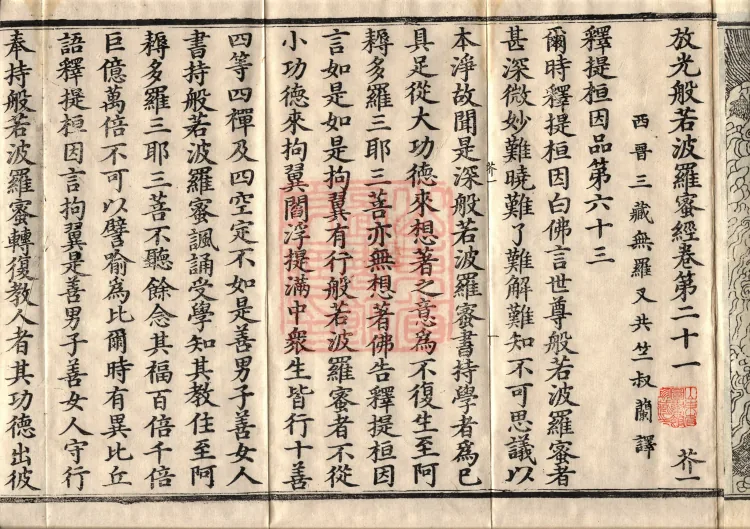 放光般若波羅蜜經卷第二十一 芥一
西晉三藏無羅叉共竺叔蘭譯
釋提桓因品第六十三
爾時釋提桓因白佛言世尊般若波羅蜜者
甚深微妙難曉難了難解難知不可思議以
芥一
本淨故聞是深般若波羅蜜書持學者為已
具足從大功德來想著之意為不復生至阿
耨多羅三耶三菩亦無想著佛告釋提桓因
言如是如是拘翼有行般若波羅蜜者不從
小功德來拘翼閻浮提滿中眾生皆行十善
四等四禪及四空定不如是善男子善女人
書持般若波羅蜜諷誦受學知其教住至阿
耨多羅三耶三菩不聽餘念其福百倍千倍
巨億萬倍不可以譬喻為比爾時有異比丘
語釋提桓因言拘翼是善男子善女人守行
奉持般若波羅蜜轉復教人者其功德出彼